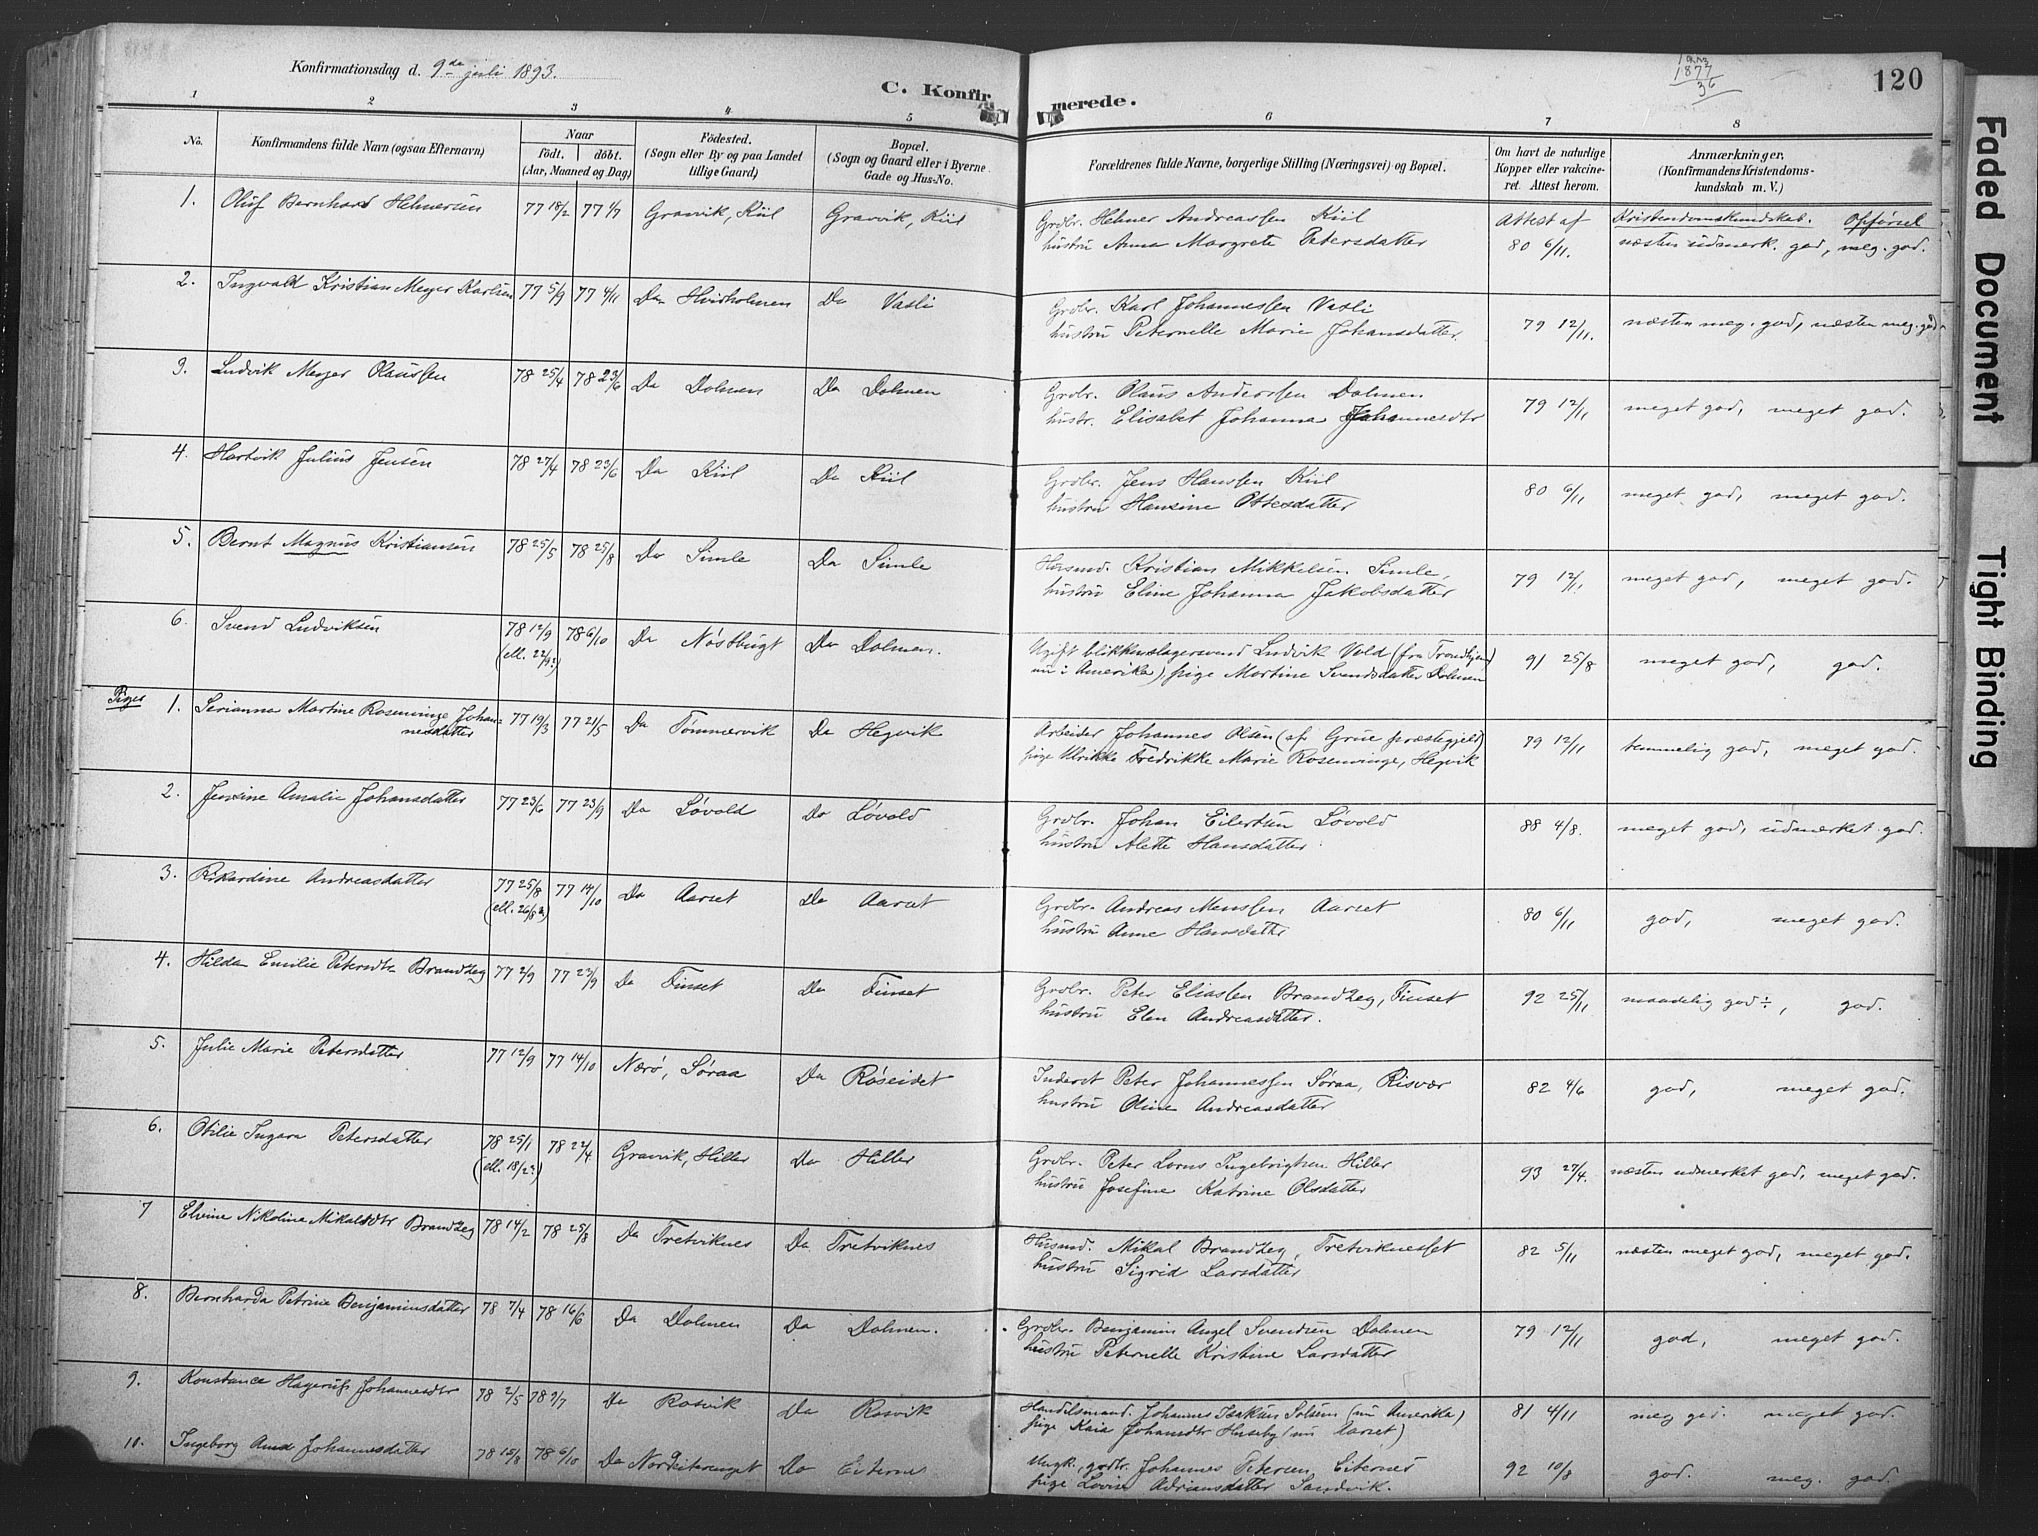 Konfirmationsdag d. 9de juli 1893.
C. Konfirmerede.
1877
36
120
1 2 3 4 5 6 7 8
No.
Konfirmandens fulde Navn (ogsaa Efternavn)
Naar
födt. döbt.
(Aar, Maaned og Dag)
Födested.
(Sogn eller By og paa Landet
tillige Gaard)
Bopæl.
(Sogn og Gaard eller i Byerne
Gade og Hus-No.
Forældrenes fulde Navne, borgerlige Stilling (Næringsvei) og Bopæl.
Om havt de naturlige
Kopper eller vakcine-
ret. Attest herom.
Anmærkninger.
(Konfirmandens Kristendoms-
kundskab m. V.)
1. Oluf Bernhard Helmersen 77 18/2 77 Gravik, Kiil Gravik, Kiil Grdbr. Helmer Andreassen Kiil Attest af Kristendomskundskab. Opførsel
hustru Anna Margrete Petersdatter 80 6/11. næsten udmerk. god, meg. god.
2. Ingvald Kristian Meyer Karlsen 77 5/9 77 4/11 Do Hvisholmen Do Vasli Grdbr. Karl Johannessen Vasli
hustru Peternelle Marie Johansdatter. 79 12/11. næsten meg. god, næsten meg. god
3. Ludvik Meyer Olaussen 78 25/4 78 23/6 Do Dolmen Do Dolmen Grdbr. Olaus Anderssen Dolmen
hustr. Elisabet Johanna Johannesdtr 79 12/11 meget god, meget god.
4. Hartvik Julius Jensen 78 27/4 78 23/6 Do Kiil Do Kiil Grdbr. Jens Hanssen Kiil
hustru Hansine Ottesdatter 80 6/11 meget god, meget god.
5. Bernt Magnus Kristiansen 78 25/5 78 25/8 Do Simle Do Simle Husmd. Kristian Mikkelsen Simle,
hustru Eline Johanna Jakobsdatter 79 12/11. meget god, meget god.
6. Svend Ludviksen 78 12/9 78 6/10 Do Nøstbugt Do Dolmen. Ugift blikkenslagersvend Ludvik Vold (fra Trondhjem)
(ell. 22/9?) nu i Amerika), pige Martine Svendsdatter Dolmen 91 25/8 meget god, god.
Piger 1. Serianna Martine Rosenvinge Johan-
nesdatter 77 19/3 77 21/5 Do Tømmervik Do Hegvik Arbeider Johannes Olsen (af Grue præstegjeld)
pige Ulrikke Fredrikke Marie Rosenvinge, Hegvik 79 12/11 temmelig god, meget god.
2. Jensine Amalie Johansdatter 77 23/6 77 23/9 Do Løvold Do Løvold Grdbr. Johan Eilertsen Løvold
hustru Alette Hansdatter. 88 4/8. meget god, udmerket god.
3. Rikardine Andreasdatter 77 25/8 77 14/10 Do Aarset Do Aarset Grdbr. Andreas Monssen Aarset
(ell. 26/8?) hustru Anne Hansdatter 80 6/11 god, meget god.
4. Hilda Emilie Petersdtr Brandzeg 77 2/9 77 23/9 Do Finset Do Finset Grdbr. Peter Eliassen Brandzeg, Finset
hustru Elen Andreasdatter. 92 25/11 maadelig god ÷, god.
5. Julie Marie Petersdatter 77 12/9 77 14/10 Nærø, Søraa Do Røseidet Inderst Peter Johannessen Søraa, Risvær
hustru Oline Andreasdatter 82 4/6 god, meget god.
6. Otilie Ingara Petersdatter 78 25/1 78 22/4 Gravik, Hiller Do Hiller Grdbr. Peter Lorns Ingebrigtsen Hiller
(ell. 18/2?) hustru Josefine Katrine Olsdatter 93 27/4. næsten udmerket god, meget god.
7 Elvine Nikoline Mikalsdtr Brandzeg 78 14/2 78 25/8 Do Tretviknes Do Tretviknes Husmd. Mikal Brandzeg, Tretviknesset
hustru Sigrid Larsdatter 82 5/11 næsten meget god, meget god.
8. Bernharda Petrine Benjaminsdatter 78 7/4 78 16/6 Do Dolmen Do Dolmen. Grdbr. Benjamin Angel Svendsen Dolmen
hustru Peternelle Kristine Larsdatter 79 12/11 god, meget god.
9. Konstance Hagerup Johannesdtr 78 2/5 78 9/7 Do Rosvik Do Rosvik Handelsmand. Johannes Isaksen Solsem (nu Amerika)
pige Kaia Johansdtr Huseby (nu Aarset) 81 4/11 meg god. meget god.
10. Ingeborg And Johannesdatter 78 15/8 78 6/10 Do Do Eiternes Ungk. gdbr. Johannes Petersen Eiternes
pige Lovise Adriansdatter Sandvik. 92 10/8 god. meg. god.
Faded Document
Tight Binding